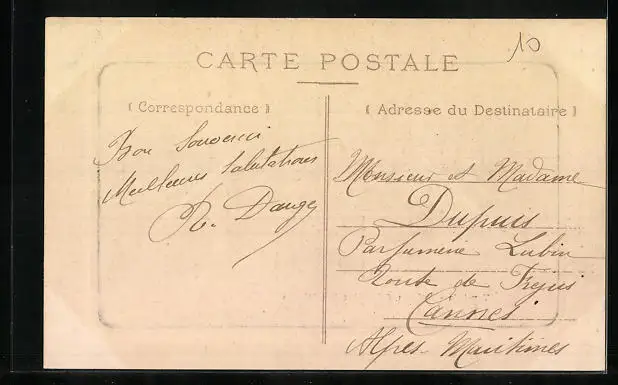 10
CARTE POSTALE
(Correspondance)
(Adresse du Destinataire)
Bon Souvenir
Meilleures Salutations
R. Dauge
Monsieur et Madame
Dupuis
Parfumerie Lubin
Route de Frejus
Cannes
Alpes-Maritimes